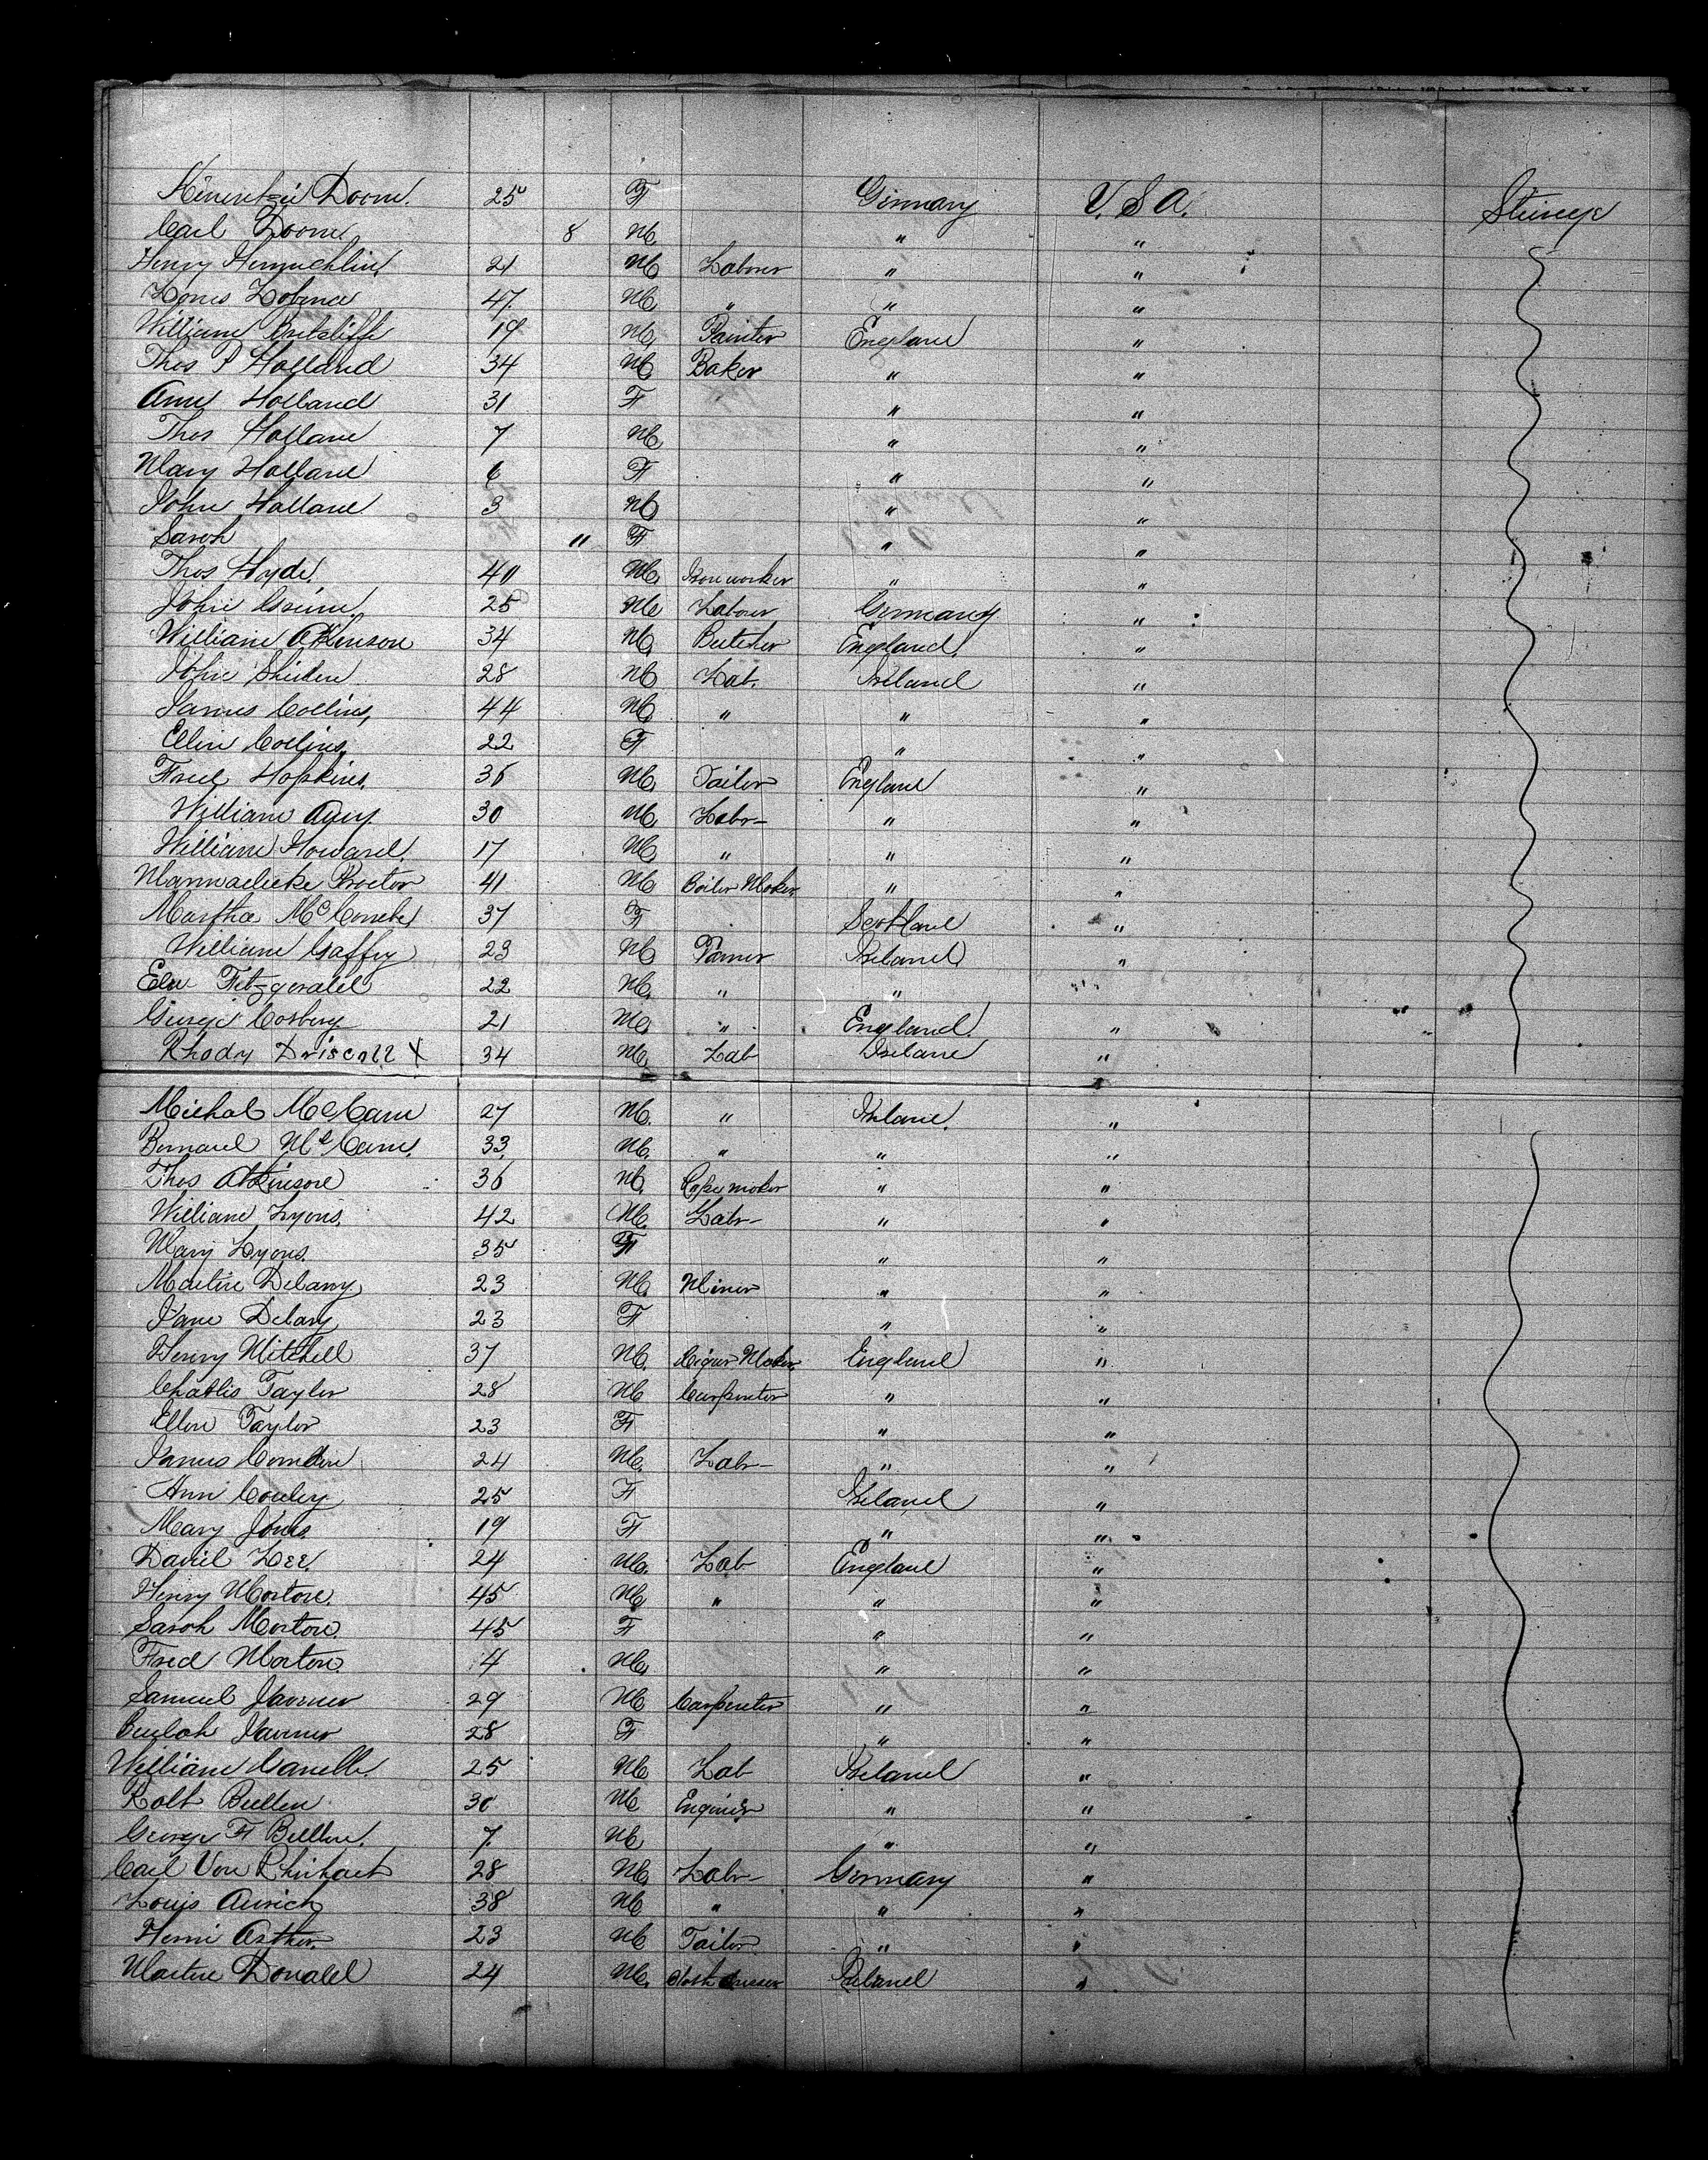 Doorn 25 F Germany U.S.A. Steerage
Carl Doorn 8 M " "
Henry 21 M Labourer " "
Louis 47 M " " "
William 19 M Painter England "
Thos P Holland 34 M Baker " "
Ann Holland 31 F " "
Thos Holland 7 M " "
Mary Holland 6 F " "
John Holland 3 M " "
Sarah " F " "
Thos Hyde 40 M Iron worker " "
John Grimm 25 M Labour Germany "
William Atkinson 34 M Butcher England "
John 28 M Lab. Ireland "
James Collins 44 M " " "
Ellen Collins 22 F " "
Fred Hopkins 36 M Tailor England "
William 30 M Labr " "
William Howard 17 M " " "
Marmaducke Proctor 41 M Boiler Maker " "
Martha McCombe 37 F Scotland "
William Gaffey 23 M Farmer Ireland "
Fitzgerald 22 M " "
George Cosbury 21 M " England "
Rhody Driscoll X 34 M Lab Ireland "
Michal McCann 27 M " Ireland "
Bernard McCann 33 M " " "
Thos Atkinson 36 M maker " "
William Lyons 42 M Labr " "
Mary Lyons 35 F " "
Martin Delany 23 M Miner " "
Jane Delany 23 F " "
Henry Mitchell 37 M Cigar Maker England "
Charles Taylor 28 M Carpenter " "
Ellen Taylor 23 F " "
James 24 M Labr " "
Ann Conley 25 F Ireland "
Mary Jones 19 F " "
David Lee 24 M Lab England "
Henry Morton 45 M " " "
Sarah Morton 45 F " "
Fred Morton 4 M " "
Samuel 29 M Carpenter " "
Beulah 28 F " "
William 25 M Lab Ireland "
Robt Bullen 30 M Engineer " "
George F Bullen 7 M " "
Carl Von 28 M Labr Germany "
Louis Aurich 38 M " " "
Henri 23 M Tailor " "
Martin Donald 24 M Cloth dresser Ireland "